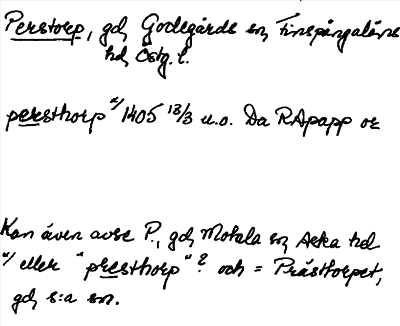 Perstorp, gd, Godegårds sn, Finspångaläns
hd, Östg. l.
persthorp a/ 1405 13/3 u.o. Da RApapp or
Kan även avse P., gd, Motala sn, Aska hd
a/ eller "presthorp"? och = Prästtorpet,
gd, s:a sn.